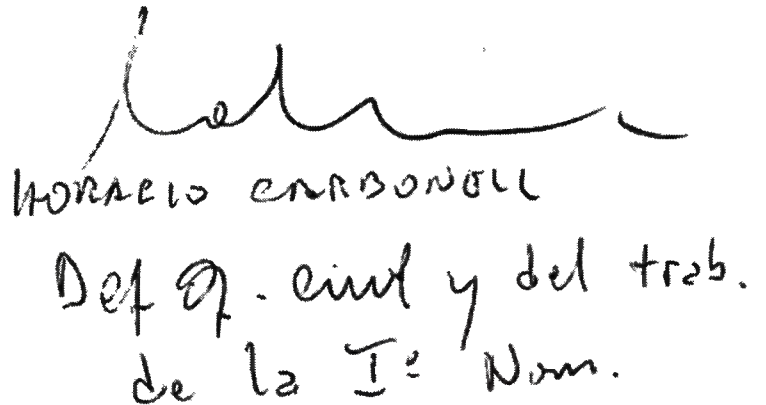 HORACIO CARBONELL
Def Of. civil y del trab.
de la Iº Nom.